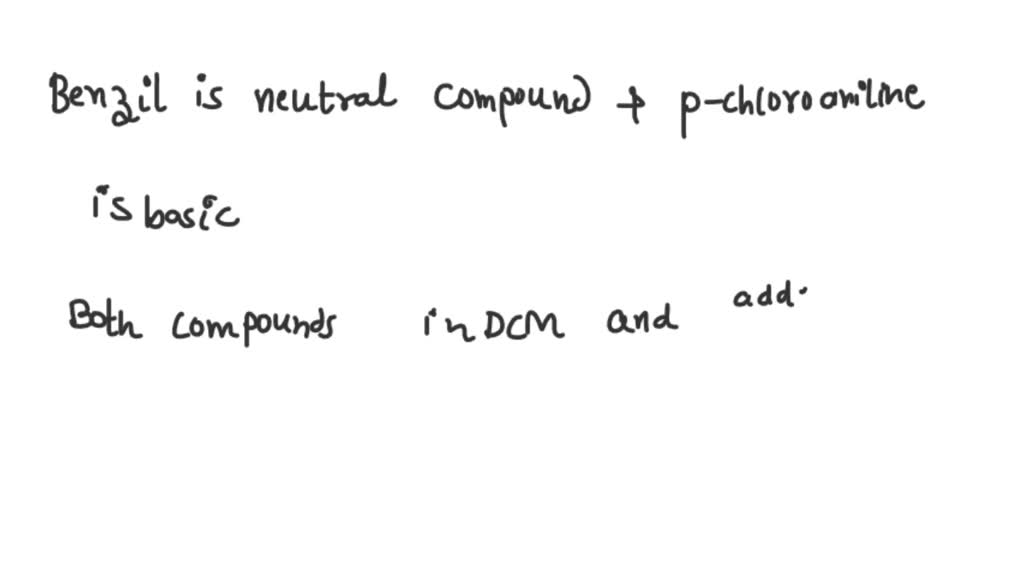 Benzil is neutral compound + p-chloroaniline
is basic
Both compounds in DCM and add.